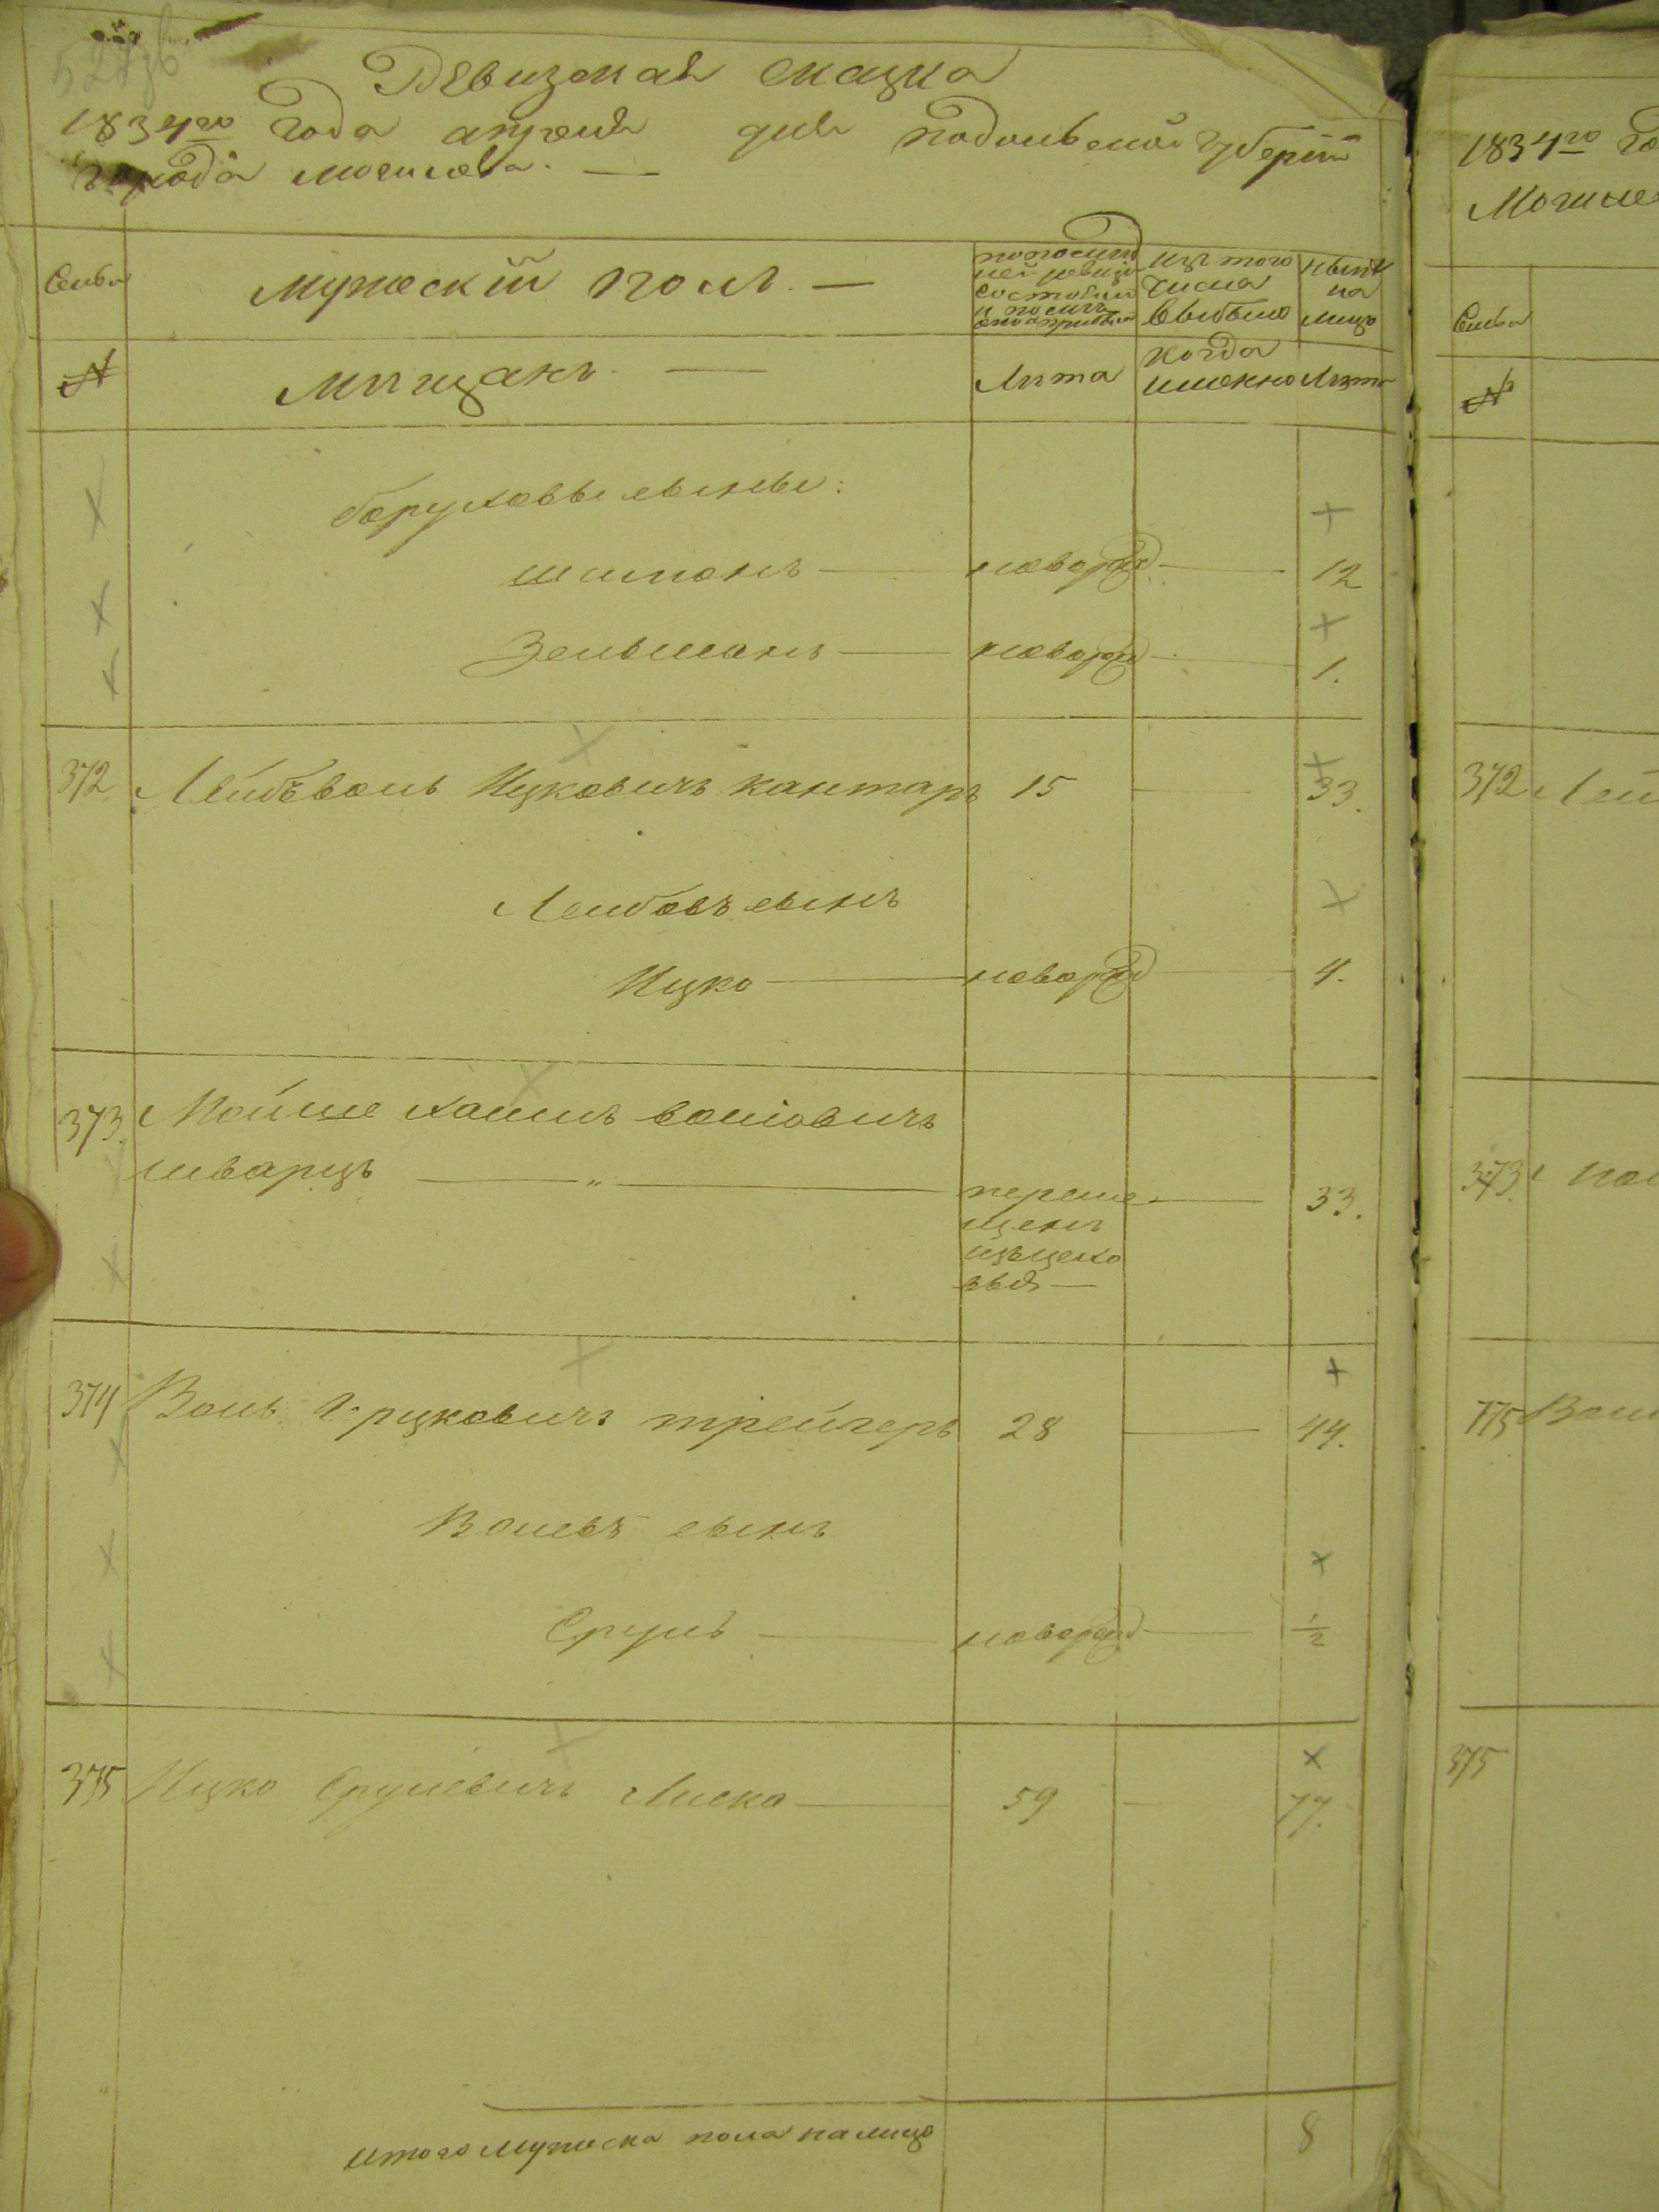 Ревизская сказка
1834го года апреля дня подольской губернии
города могилева. —
Семьи
Мужеский пол. —
по последней ревизии состояло и после оной прибыло
изъ того числа выбыло
ныне на лицо
№
Мещанъ. —
Лета
когда именно
Лета
Боруховы сыны:
Шимонъ — новорожд — 12
Зельманъ — новорожд — 1.
372 Лейбъволь Ицковичъ кантаръ 15 — 33.
Лейбовъ сынъ
Ицко — новорожд — 4.
373. Мойше хаимъ волiовичъ
шварцъ — " — переме — 33.
щенъ
изъцехо
выхъ —
374 Воль Герцковичъ трейгеръ 28 — 44.
Волевъ сынъ
Сруль — новорожд — 1/2
375 Ицко Срулевичъ Лиска — 59 — 77.
итого мужеска пола налицо 8
1834го го
Могиле
Семьи
№
372 Лей
373. Мой
775 Воль
375